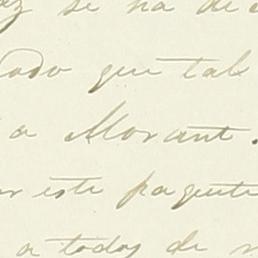 se ha de
que tal
a Morant.
este paquete
a todos de